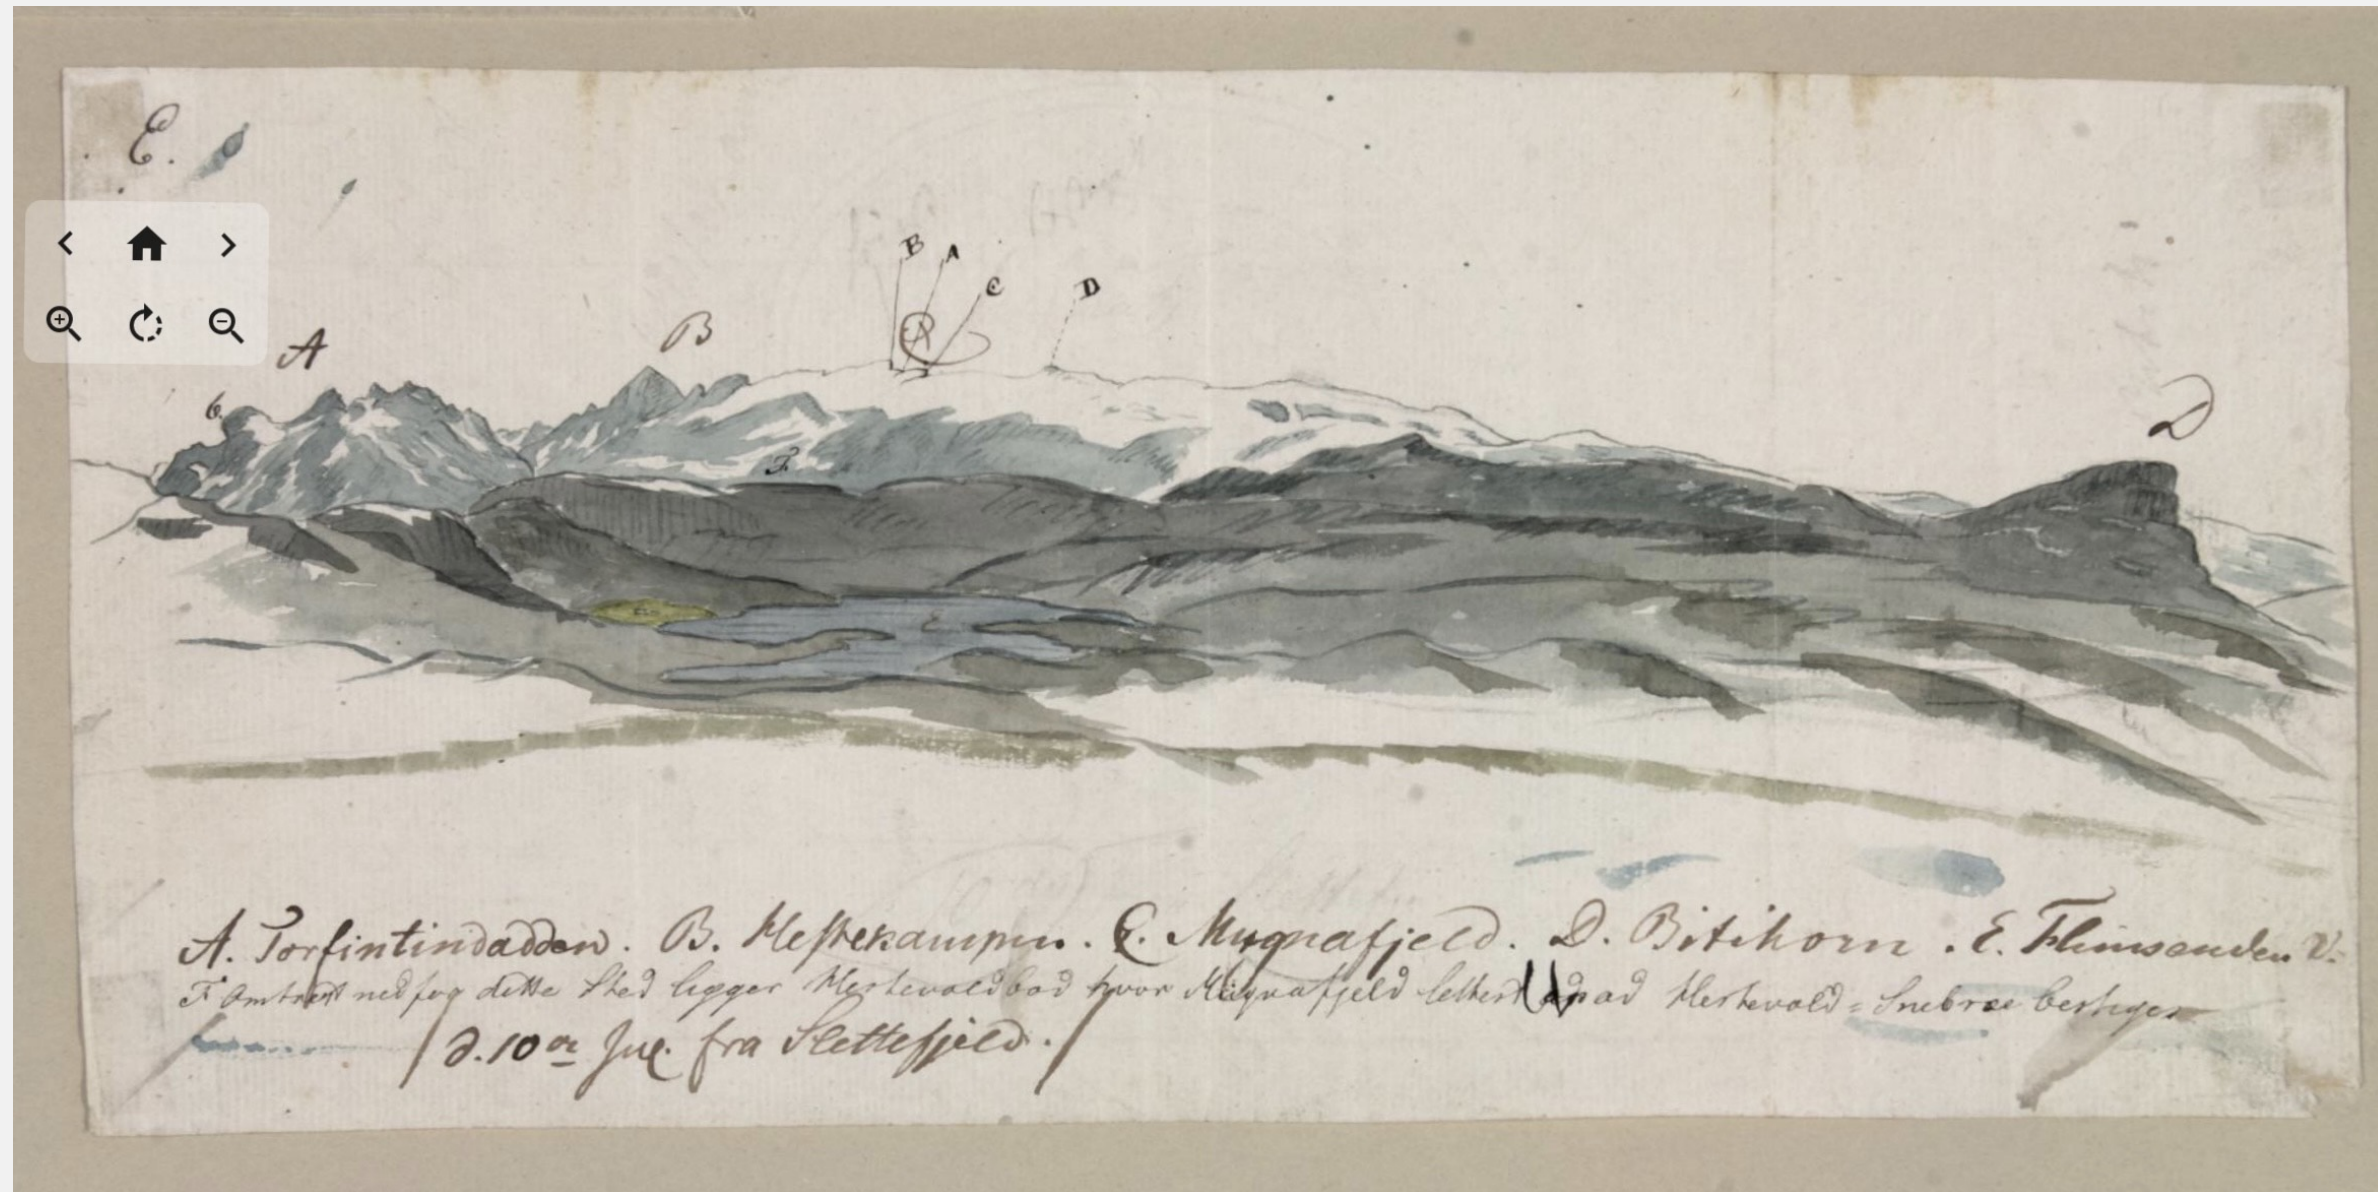 E.
B A
C D
A B
6.
D
F.
E
A. Torfintindadden. B. Hestekampen. C. Mugnafjeld. D. Bitihorn. E. Flimsanden V.
F Omtrent nedfor dette Sted ligger Hestevoldbod hvor Mugnafjeld lettest ad Hestevold= Snebræ bestiges
d. 10de Jul. fra Slettefjeld.